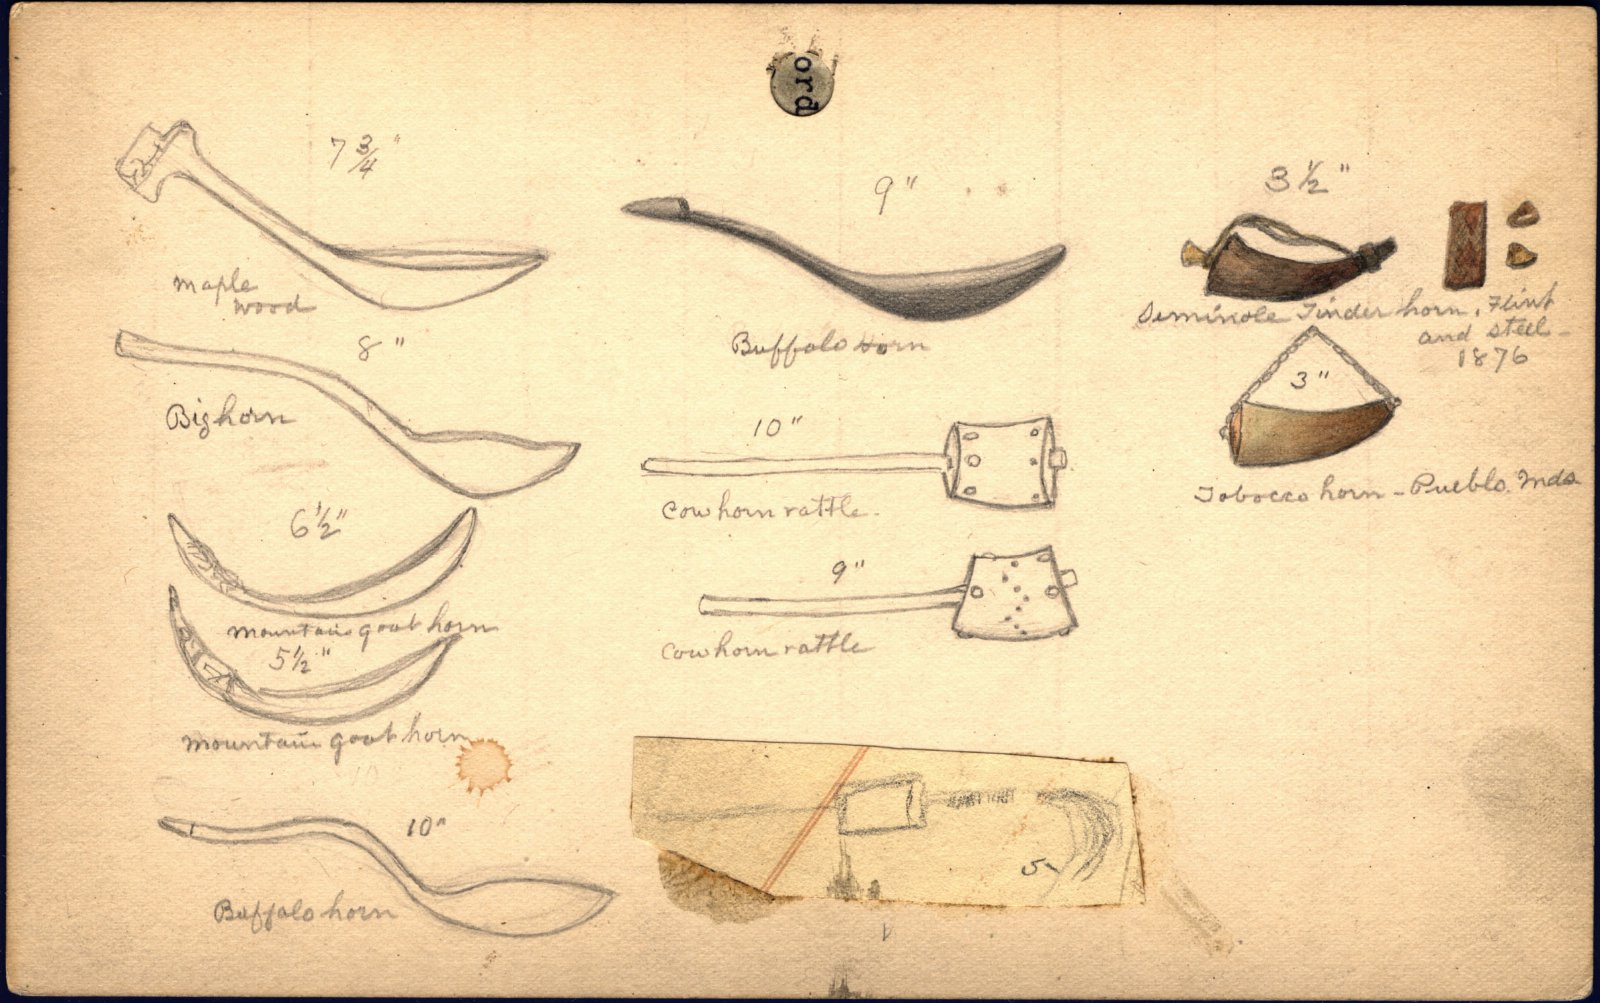 ord
7 3/4"
maple
wood
8"
Bighorn
6 1/2"
mountain goat horn
5 1/2"
mountain goat horn
10"
Buffalo horn
9"
Buffalo Horn
10"
Cow horn rattle.
9"
Cow horn rattle
5
3 1/2"
Seminole Tinder horn, Flint
and steel -
1876
3"
Tobacco horn - Pueblo. Inds.